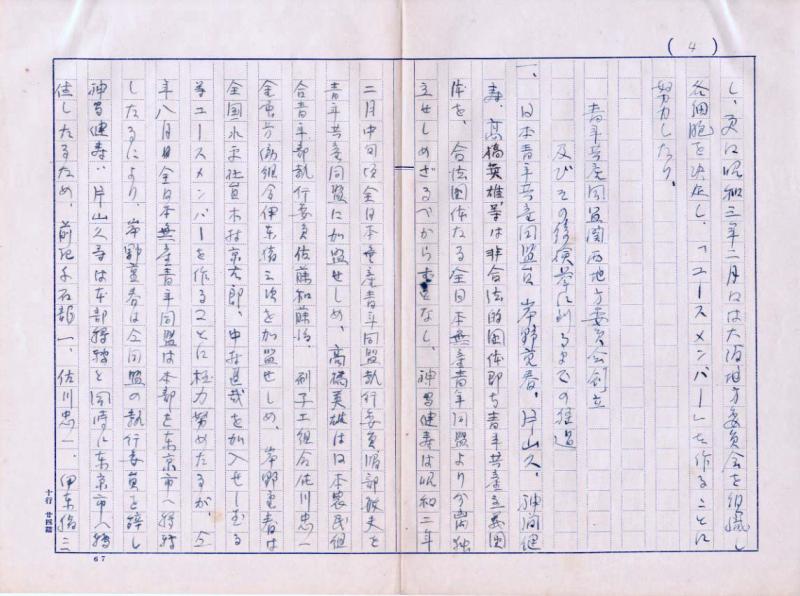 (4)
し、更に昭和三年二月には大阪地方委員会を組織し
各細胞を決定し、「ユースメンバー」を作ることに
努力したり。
青年共産同盟関西地方委員会創立
及びその後検挙に到るまでの経過
一、日本青年共産同盟員 岸野 春、片山久、神 健
寿、高橋英雄、等は非合法的団体即ち青年共産主義団
体を、合法団体たる全日本無産青年同盟よりか離独
立せしめざるべからず となし、神 健寿は昭和二年
二月中旬頃全日本無産青年同盟執行委員 部敏夫を
青年共産同盟に加盟せしめ、高橋英雄は日本農民組
合青年部執行委員佐藤和 治、刷子工組合佐川忠一
金 労働組合伊东 三次を加盟せしめ、岸野 春は
全国水平社員木村京太郎、中村甚哉を加入せしむる
等ユースメンバーを作ることに極力努めたるが 仝
年八月日全日本無産青年同盟は本部を东京市へ移轉
したるにより、岸野 春は仝同盟の執行委員を辞し
神 健寿、片山久等は本部移轉と同時に东京市へ轉
住したるため、前記千石龍一、佐川忠一、伊东 三
十行 廿四詰
67